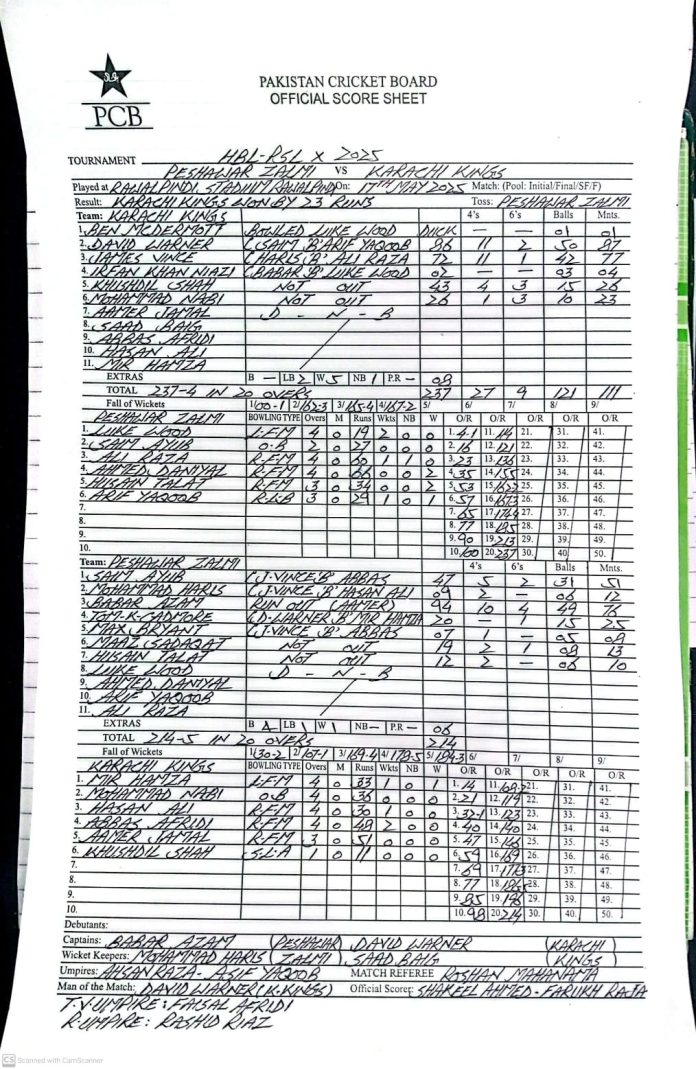 PCB
PAKISTAN CRICKET BOARD
OFFICIAL SCORE SHEET
TOURNAMENT HBL-PSL X 2025
PESHAWAR ZALMI VS KARACHI KINGS
Played at RAWALPINDI, STADIUM RAWALPINDI On: 17TH MAY 2025 Match: (Pool: Initial/Final/SF/F)
Result: KARACHI KINGS WON BY 23 RUNS Toss: PESHAWAR ZALMI
Team: KARACHI KINGS 4's 6's Balls Mnts.
1. BEN MCDERMOTT BOWLED LUKE WOOD DUCK — — 01 01
2. DAVID WARNER C SAIM 'B' ARIF YAQOOB 86 11 2 50 87
3. JAMES VINCE C HARIS 'B' ALI RAZA 72 11 1 42 77
4. IRFAN KHAN NIAZI C BABAR 'B' LUKE WOOD 02 — — 03 04
5. KHUSHDIL SHAH NOT OUT 43 4 3 15 26
6. MOHAMMAD NABI NOT OUT 26 1 3 10 23
7. AAMER JAMAL D - N - B
8. SAAD BAIG
9. ABBAS AFRIDI
10. HASAN ALI
11. MIR HAMZA
EXTRAS B — LB 2 W 5 NB 1 P.R — 08
TOTAL 237-4 IN 20 OVERS 237 27 9 121 111
Fall of Wickets 1/00-1 2/162-3 3/165-4 4/167-2 5/ 6/ 7/ 8/ 9/
PESHAWAR ZALMI BOWLING TYPE Overs M Runs Wkts NB W O/R O/R O/R O/R O/R
1. LUKE WOOD L.F.M 4 0 19 2 0 0 1. 4-1 11. 114 21. 31. 41.
2. SAIM AYUB O.B 2 0 27 0 0 0 2. 16 12. 121 22. 32. 42.
3. ALI RAZA R.F.M 4 0 60 1 1 0 3. 23 13. 136 23. 33. 43.
4. AHMED DANIYAL R.F.M 4 0 66 0 0 2 4. 35 14. 155 24. 34. 44.
5. HUSAIN TALAT R.F.M 3 0 34 0 0 2 5. 53 15. 162-3 25. 35. 45.
6. ARIF YAQOOB R.L.B 3 0 29 1 0 1 6. 57 16. 167-3 26. 36. 46.
7. 7. 65 17. 174-4 27. 37. 47.
8. 8. 77 18. 195 28. 38. 48.
9. 9. 90 19. 213 29. 39. 49.
10. 10. 100 20. 237 30. 40. 50.
Team: PESHAWAR ZALMI 4's 6's Balls Mnts.
1. SAIM AYUB C J.VINCE 'B' ABBAS 47 5 2 31 51
2. MOHAMMAD HARIS C J.VINCE 'B' HASAN ALI 09 2 — 06 12
3. BABAR AZAM RUN OUT (AAMER) 94 10 4 49 76
4. TOM-K-CADMORE C D-WARNER 'B' MIR HAMZA 20 — 1 15 25
5. MAX BRYANT C J.VINCE 'B' ABBAS 07 1 — 05 08
6. MAAZ SADAQAT NOT OUT 19 2 1 08 13
7. HUSAIN TALAT NOT OUT 12 2 — 06 10
8. LUKE WOOD D - N - B
9. AHMED DANIYAL
10. ARIF YAQOOB
11. ALI RAZA
EXTRAS B 4 LB 1 W 1 NB — P.R — 06
TOTAL 214-5 IN 20 OVERS 214
Fall of Wickets 1/30-2 2/107-1 3/169-4 4/179-5 5/194-3 6/ 7/ 8/ 9/
KARACHI KINGS BOWLING TYPE Overs M Runs Wkts NB W O/R O/R O/R O/R O/R
1. MIR HAMZA L.F.M 4 0 33 1 0 1 1. 14 11. 108-2 21. 31. 41.
2. MOHAMMAD NABI O.B 4 0 36 0 0 0 2. 21 12. 119 22. 32. 42.
3. HASAN ALI R.F.M 4 0 30 1 0 0 3. 32-1 13. 123 23. 33. 43.
4. ABBAS AFRIDI R.F.M 4 0 48 2 0 0 4. 40 14. 140 24. 34. 44.
5. AAMER JAMAL R.F.M 3 0 51 0 0 0 5. 47 15. 146 25. 35. 45.
6. KHUSHDIL SHAH S.L.A 1 0 11 0 0 0 6. 59 16. 169 26. 36. 46.
7. 7. 69 17. 177-3 27. 37. 47.
8. 8. 77 18. 28. 38. 48.
9. 9. 85 19. 198 29. 39. 49.
10. 10. 98 20. 214 30. 40. 50.
Debutants:
Captains: BABAR AZAM (PESHAWAR) DAVID WARNER (KARACHI)
Wicket Keepers: MOHAMMAD HARIS (ZALMI) SAAD BAIG (KINGS)
Umpires: AHSAN RAZA - ASIF YAQOOB MATCH REFEREE ROSHAN MAHANAMA
Man of the Match: DAVID WARNER (K.KINGS) Official Scorer: SHAKEEL AHMED - FARUKH RAJA
T.V-UMPIRE: FAISAL AFRIDI
R.UMPIRE: RASHID RIAZ
CS Scanned with CamScanner